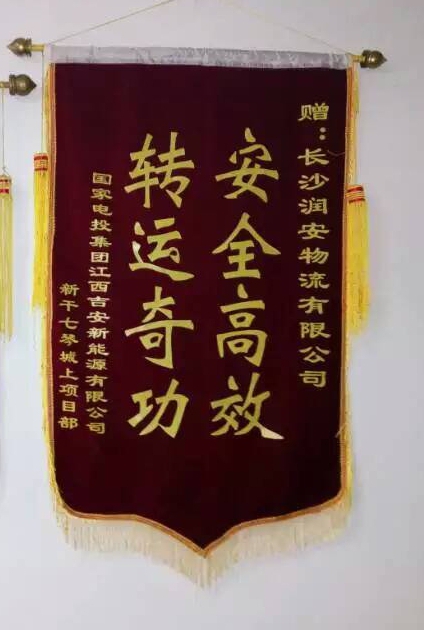 赠：长沙润安物流有限公司
安全高效
转运奇功
国家电投集团江西吉安新能源有限公司
新干七琴城上项目部